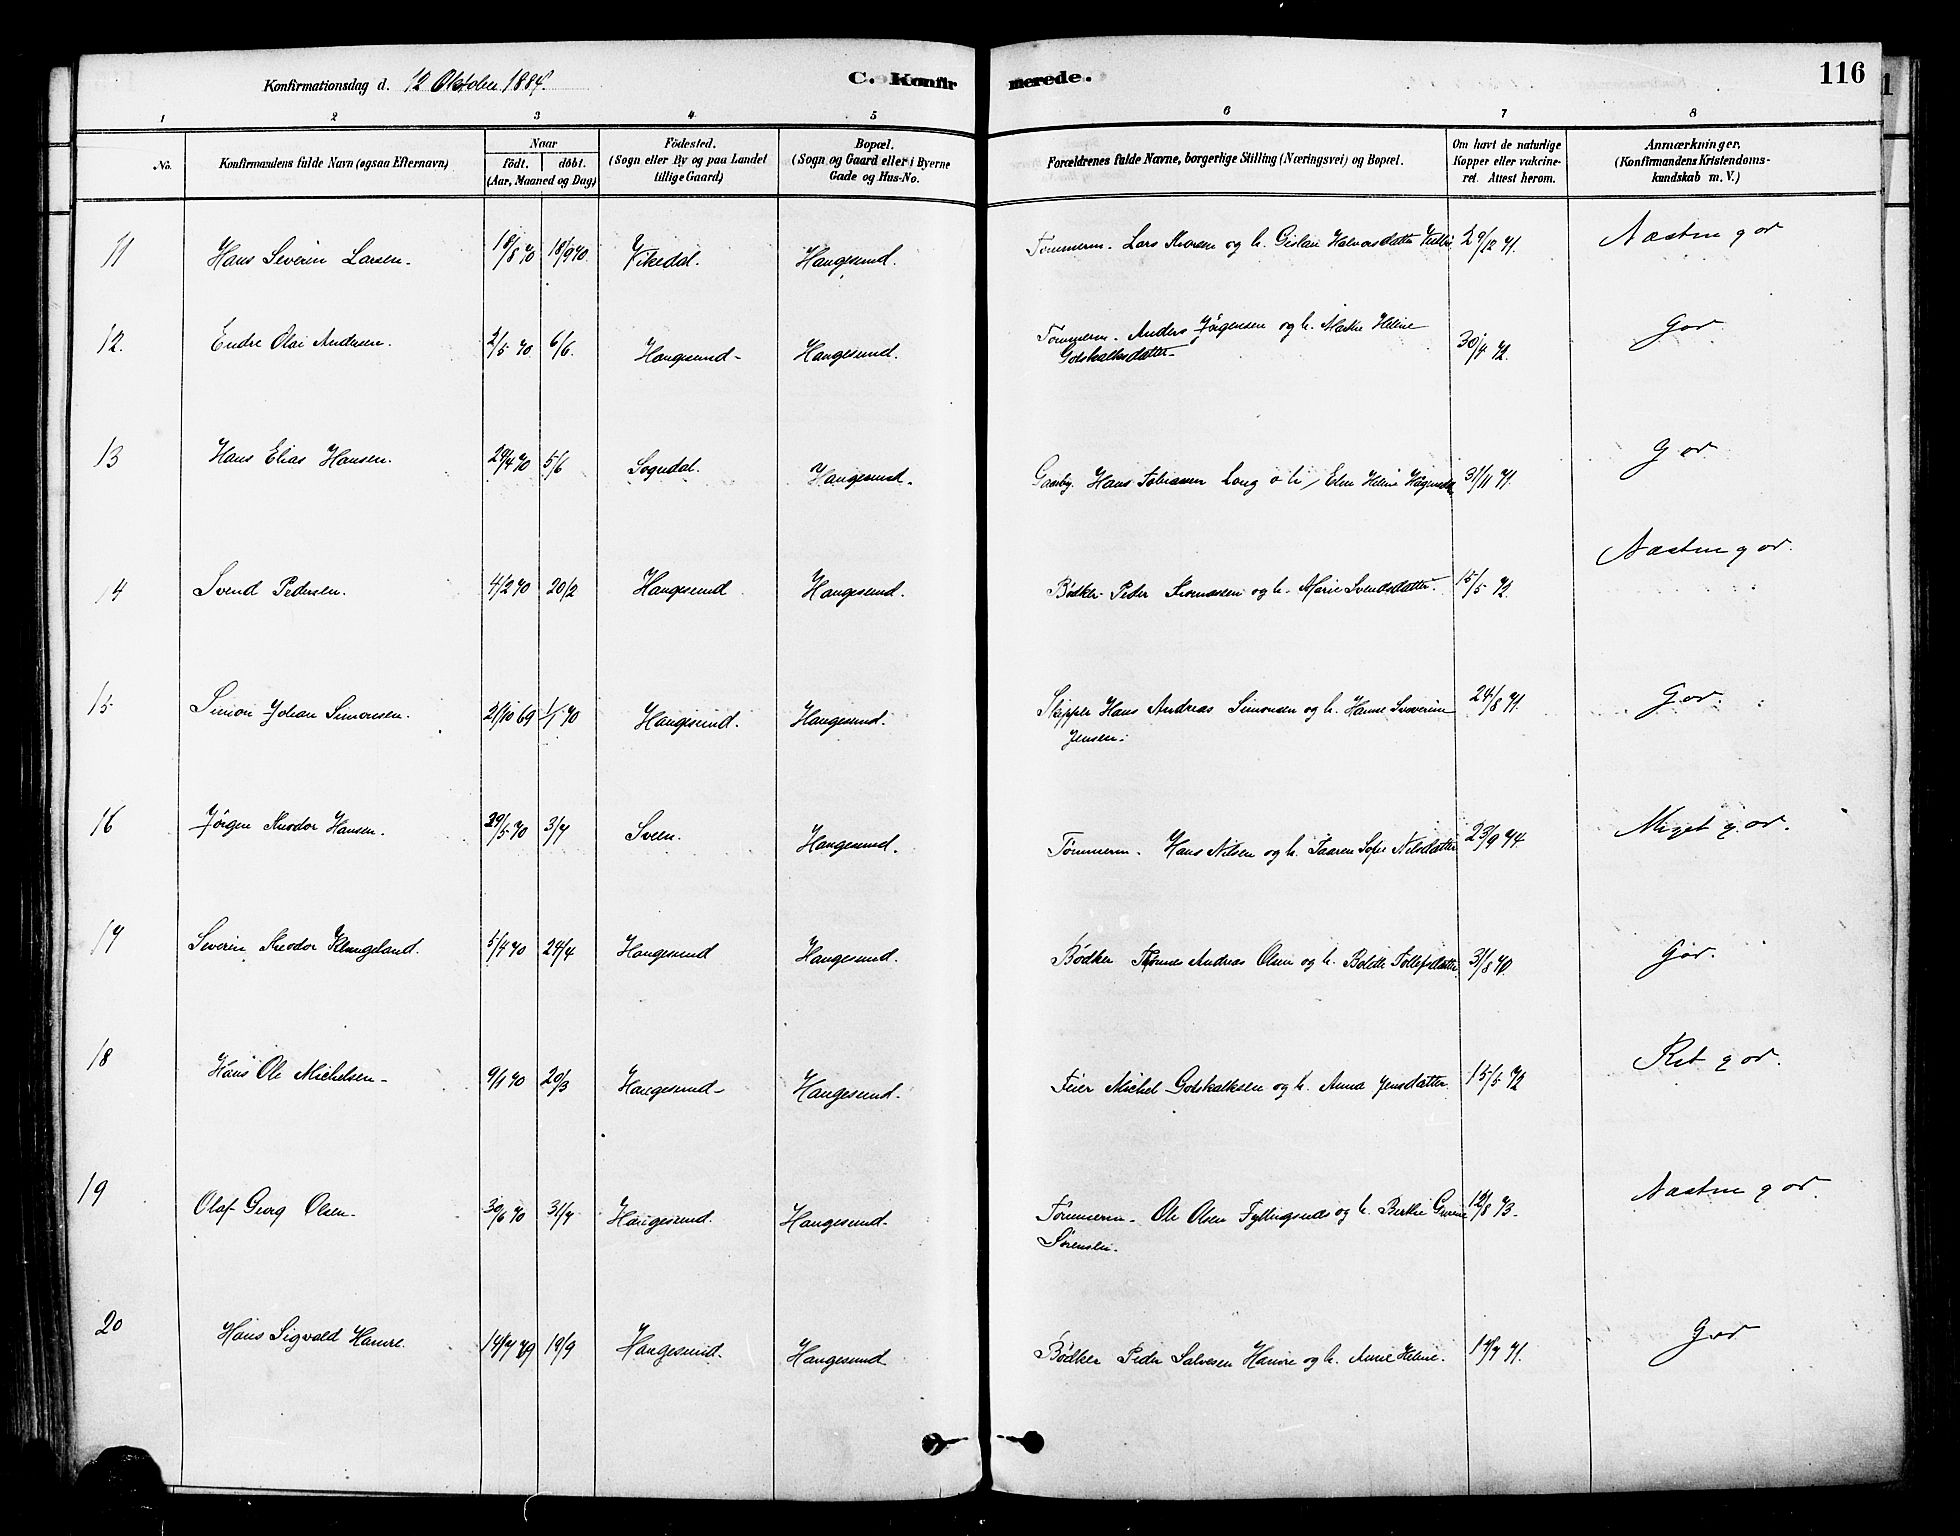 Konfirmationsdag d. 12 Oktober 1884.
C. Konfirmerede.
116
1 2 3 4 5 6 7 8
No.
Konfirmandens fulde Navn (ogsaa Efternavn)
Naar
födt. döbt.
(Aar, Maaned og Dag)
Födested.
(Sogn eller By og paa Landet
tillige Gaard)
Bopæl.
(Sogn og Gaard eller i Byerne
Gade og Hus-No.
Forældrenes fulde Navne, borgerlige Stilling (Næringsvei) og Bopæl.
Om havt de naturlige
Kopper eller vakcine-
ret. Attest herom.
Anmærkninger.
(Konfirmandens Kristendoms-
kundskab m. V.)
11 Hans Severin Larsen. 18/8 70 18/9 70. Vikedal. Haugesund. Tømmerm. Lars og h. Halvorsdatter 29/12 71. Næsten god
12. Endre Olai Andersen. 2/5 70 6/6. Haugesund- Haugesund. Tømmerm. Anders Jørgensen og h. Marthe Helene
Gotskalksdatter- 30/4 72. God.
13 Hans Elias Hansen. 29/4 70 5/6 Sogndal. Haugesund. Hans Tobiassen o h. Helene 3/11 71. God.
14 Svend Pedersen. 4/2 70 20/2 Haugesund Haugesund. Bødker Peder Thomassen og h. Marie Svendsdatter. 15/5 72. Næsten god.
15 Simon Johan Simonsen. 21/10 69 1/1 70 Haugesund. Haugesund. Skipper Hans Andreas Simonsen og h. Hanne Severine
Jensen. 24/8 71. God.
16 Jörgen Theodor Hansen. 29/5 70 3/7 Sveen. Haugesund. Tømmerm. Hans Nilsen og h. Taaren Sofie Nilsdatter 23/9 74. Meget god.
17 Severin Theodor Klungeland. 5/4 70 24/4 Haugesund Haugesund. Bødker Thomas Andreas Olsen og h. Bolette Tollefsdatter 31/8 70. God.
18 Hans Ole Michelsen- 9/1 70 20/3 Haugesund- Haugesund. Feier Michel Gotskalksen og h. Anna Jensdatter. 15/5 72 Ret god.
19 Olaf Georg Olsen. 30/6 70 31/7 Haugesund. Haugesund. Tømmerm. Ole Olsen Fyllingsnes og h. Berthe
Sørensen. 12/8 73. Næsten god.
20 Hans Sigvald Hamre. 14/7 69 19/9 Haugesund. Haugesund Bødker Peder Salvesen Hamre og h. Anne Helene. 17/7 71. God